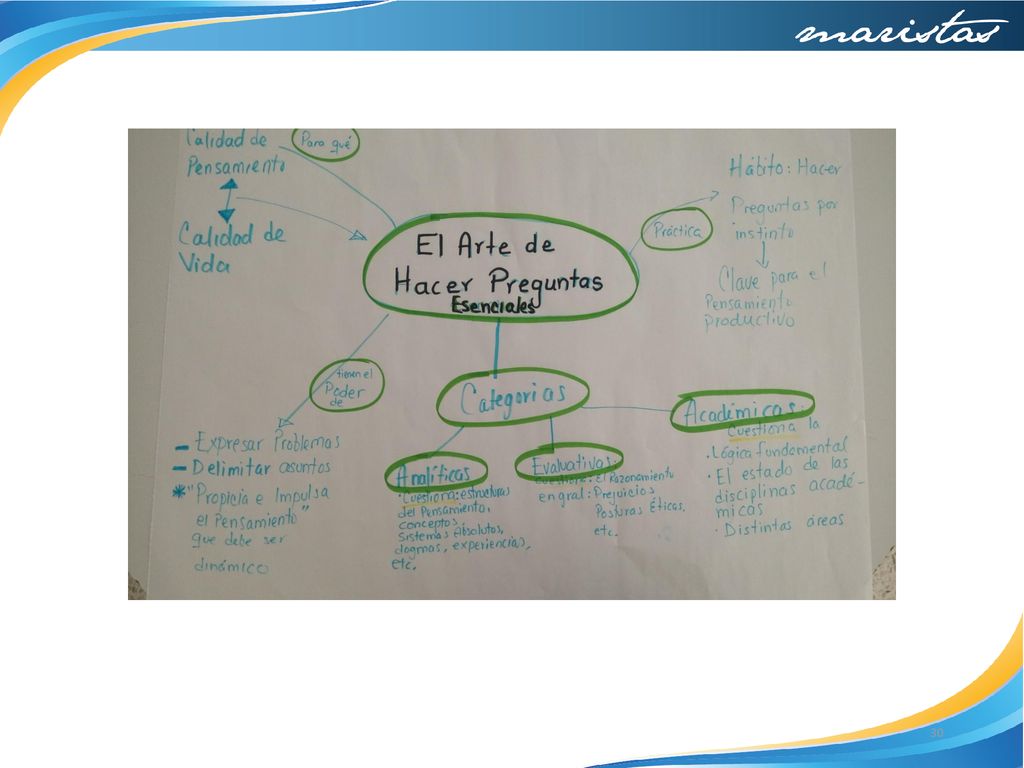 maristas
Calidad de
Pensamiento
Para qué
Calidad de
Vida
El Arte de
Hacer Preguntas
Esenciales
Práctica
Hábito: Hacer
Preguntas por
instinto
Clave para el
Pensamiento
productivo
tienen el
Poder
de
- Expresar Problemas
- Delimitar asuntos
* "Propicia e Impulsa
el Pensamiento"
que debe ser
dinámico
Categorias
Analíticas
· Cuestiona: estructuras
del Pensamiento,
conceptos,
Sistemas Absolutos,
dogmas, experiencias,
etc.
Evaluativas:
Cuestiona: El Razonamiento
en gral: Prejuicios
Posturas Éticas,
etc.
Académicas:
Cuestiona la
· Lógica fundamental
· El estado de las
disciplinas acadé-
micas
· Distintas áreas
30